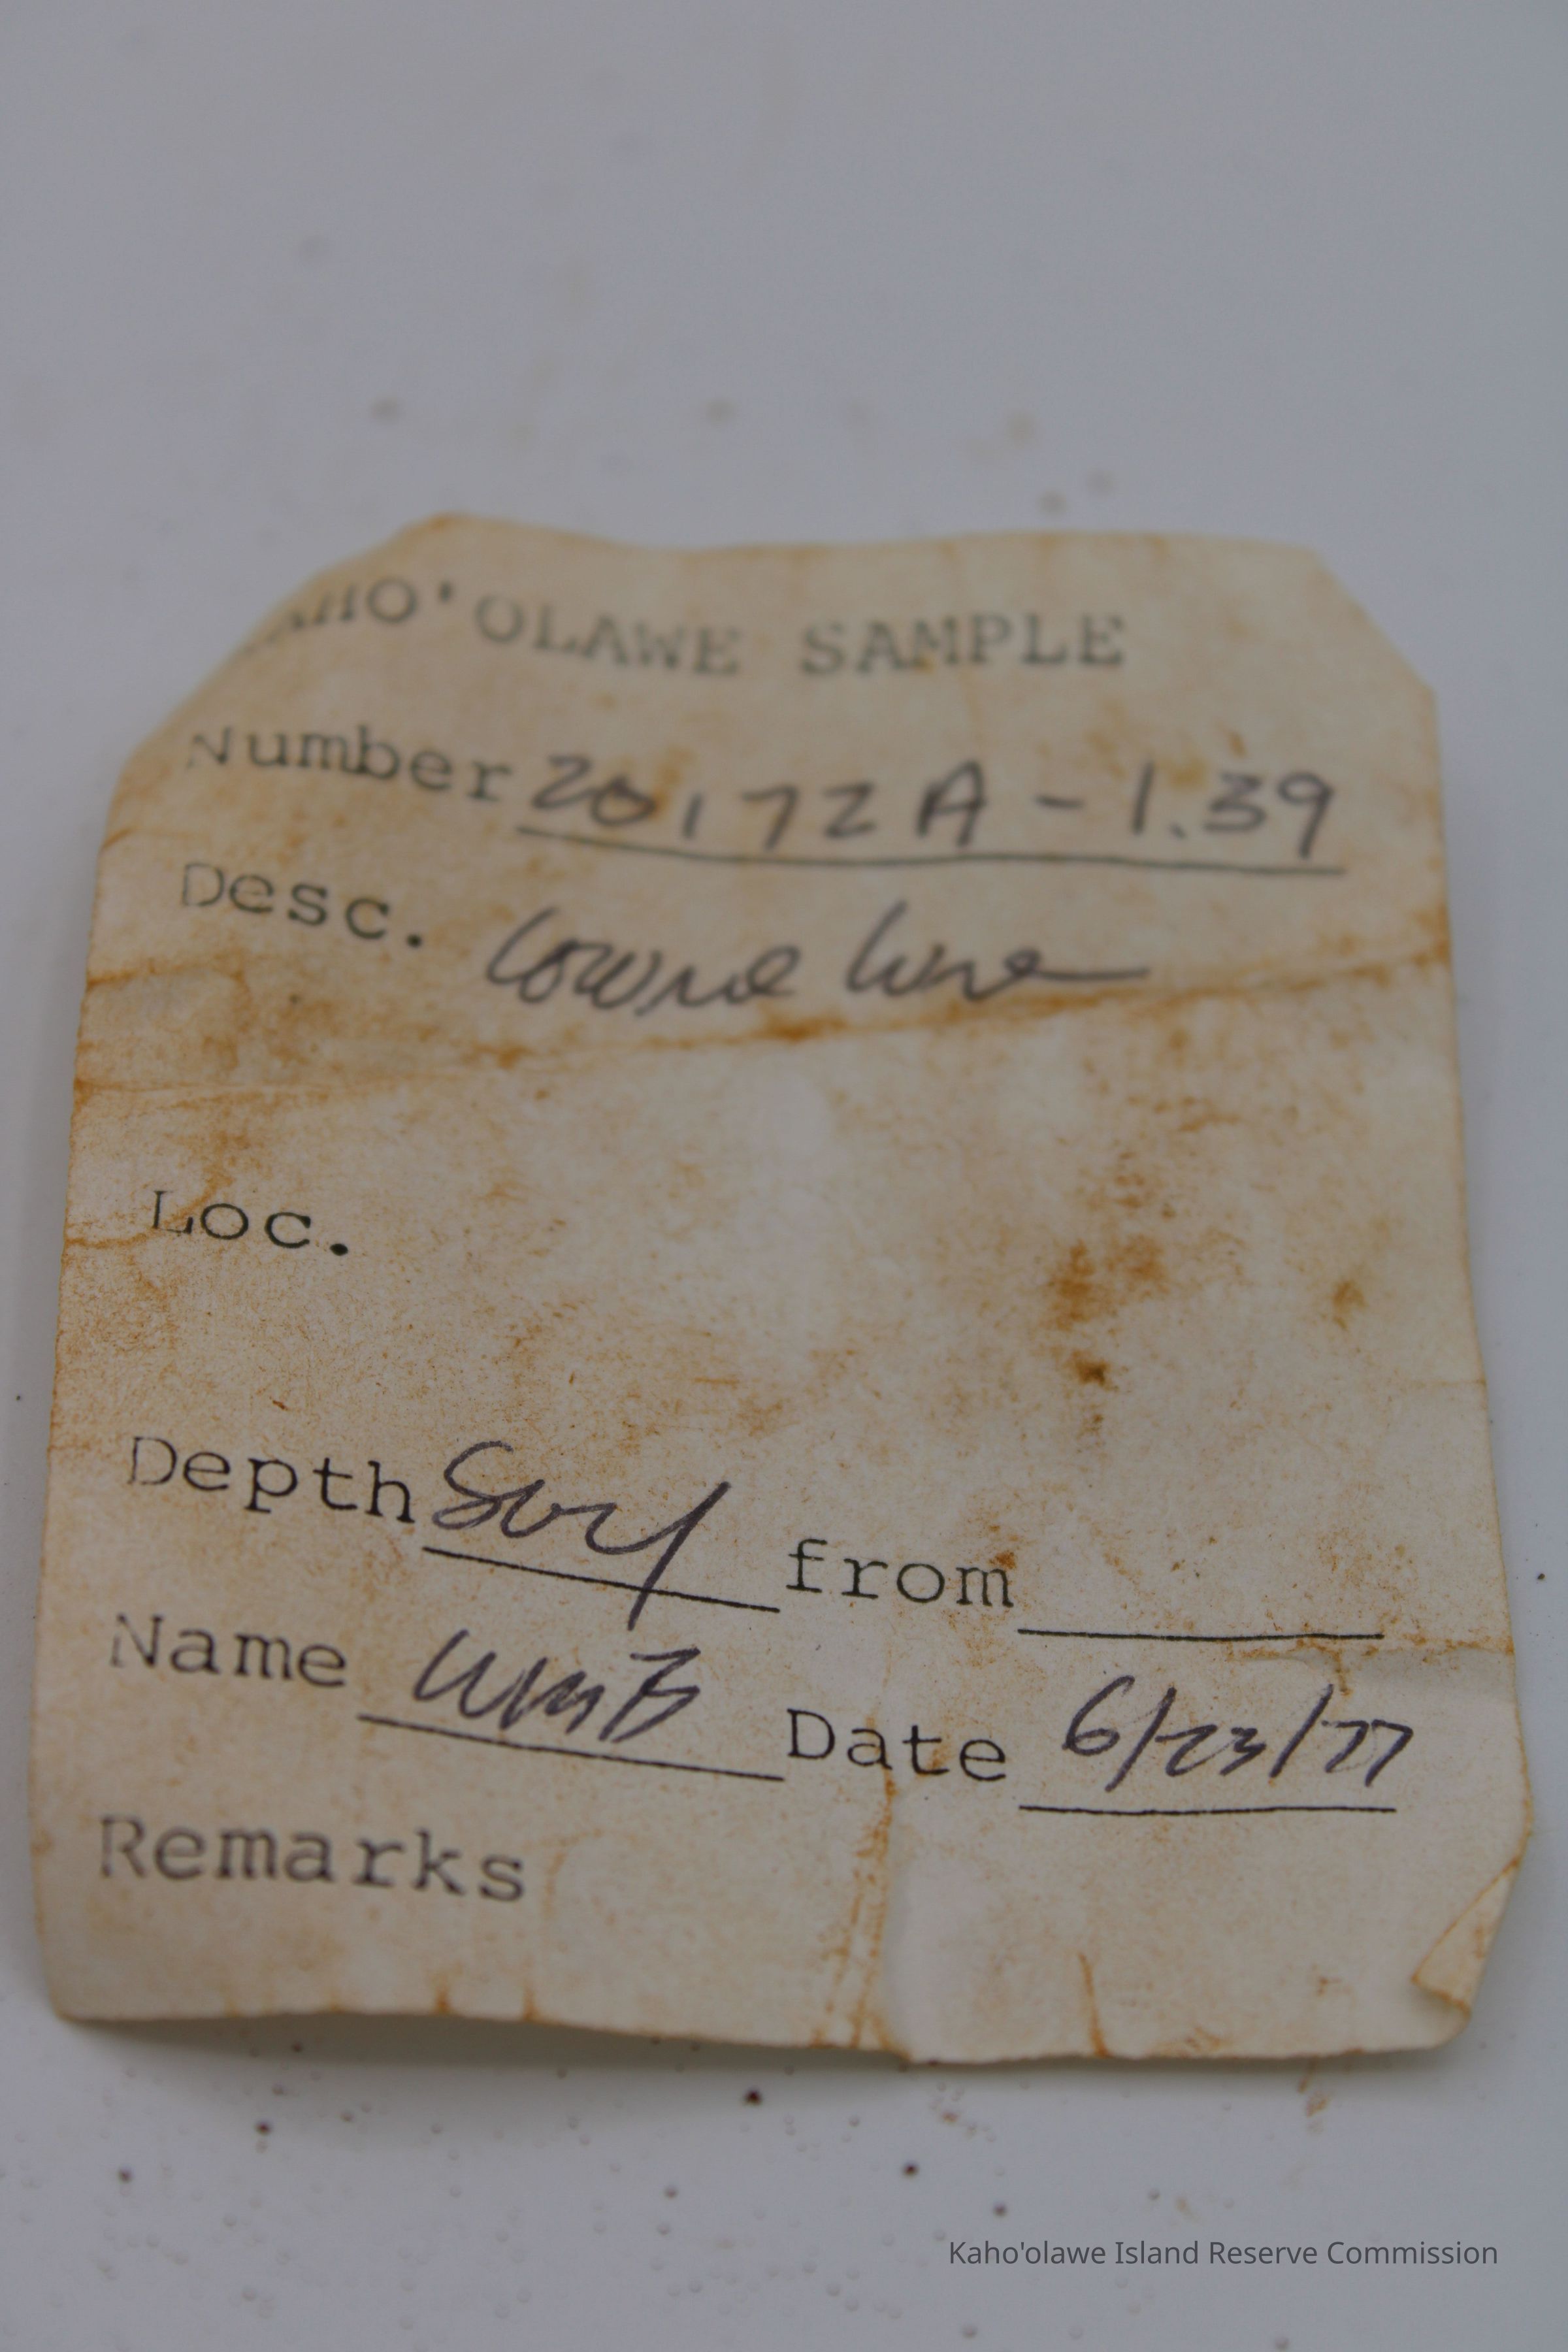 AHO'OLAWE SAMPLE
Number 20172A-1.39
Desc. Cowrie
Loc.
Depth Surf from
Name WMB Date 6/23/77
Remarks
Kaho'olawe Island Reserve Commission